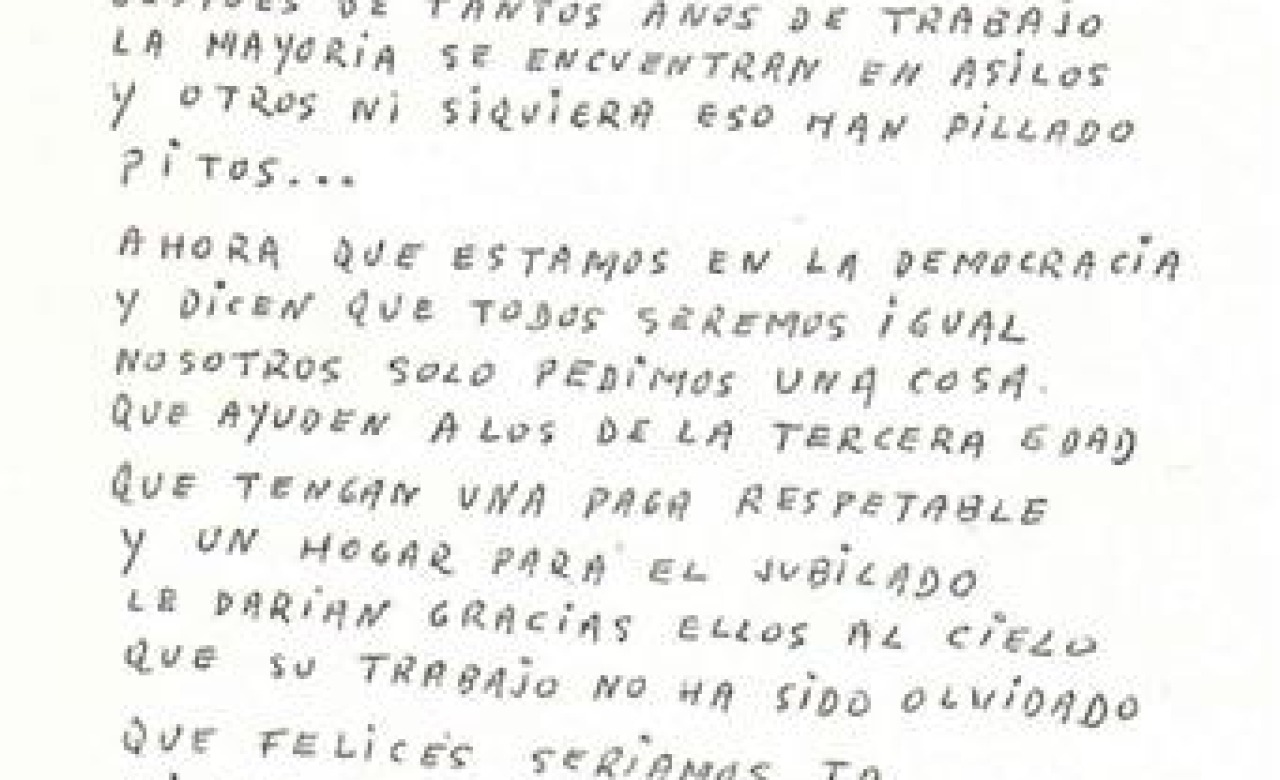 DE TANTOS AÑOS DE TRABAJO
LA MAYORiA SE ENCUENTRAN EN ASiLOS
Y OTROS Ni SiQUiERA ESO HAN PiLLADO
PiTOS...
AHORA QUE ESTAMOS EN LA DEMOCRACiA
Y DiCEN QUE TODOS SEREMOS iGUAL
NOSOTROS SOLO PEDiMOS UNA COSA.
QUE AYUDEN A LOS DE LA TERCERA EDAD
QUE TENGAN UNA PAGA RESPETABLE
Y UN HOGAR PARA EL JUBiLADO
LE DARiAN GRACiAS ELLOS AL CiELO
QUE SU TRABAJO NO HA SiDO OLViDADO
QUE FELiCES SERiAMOS